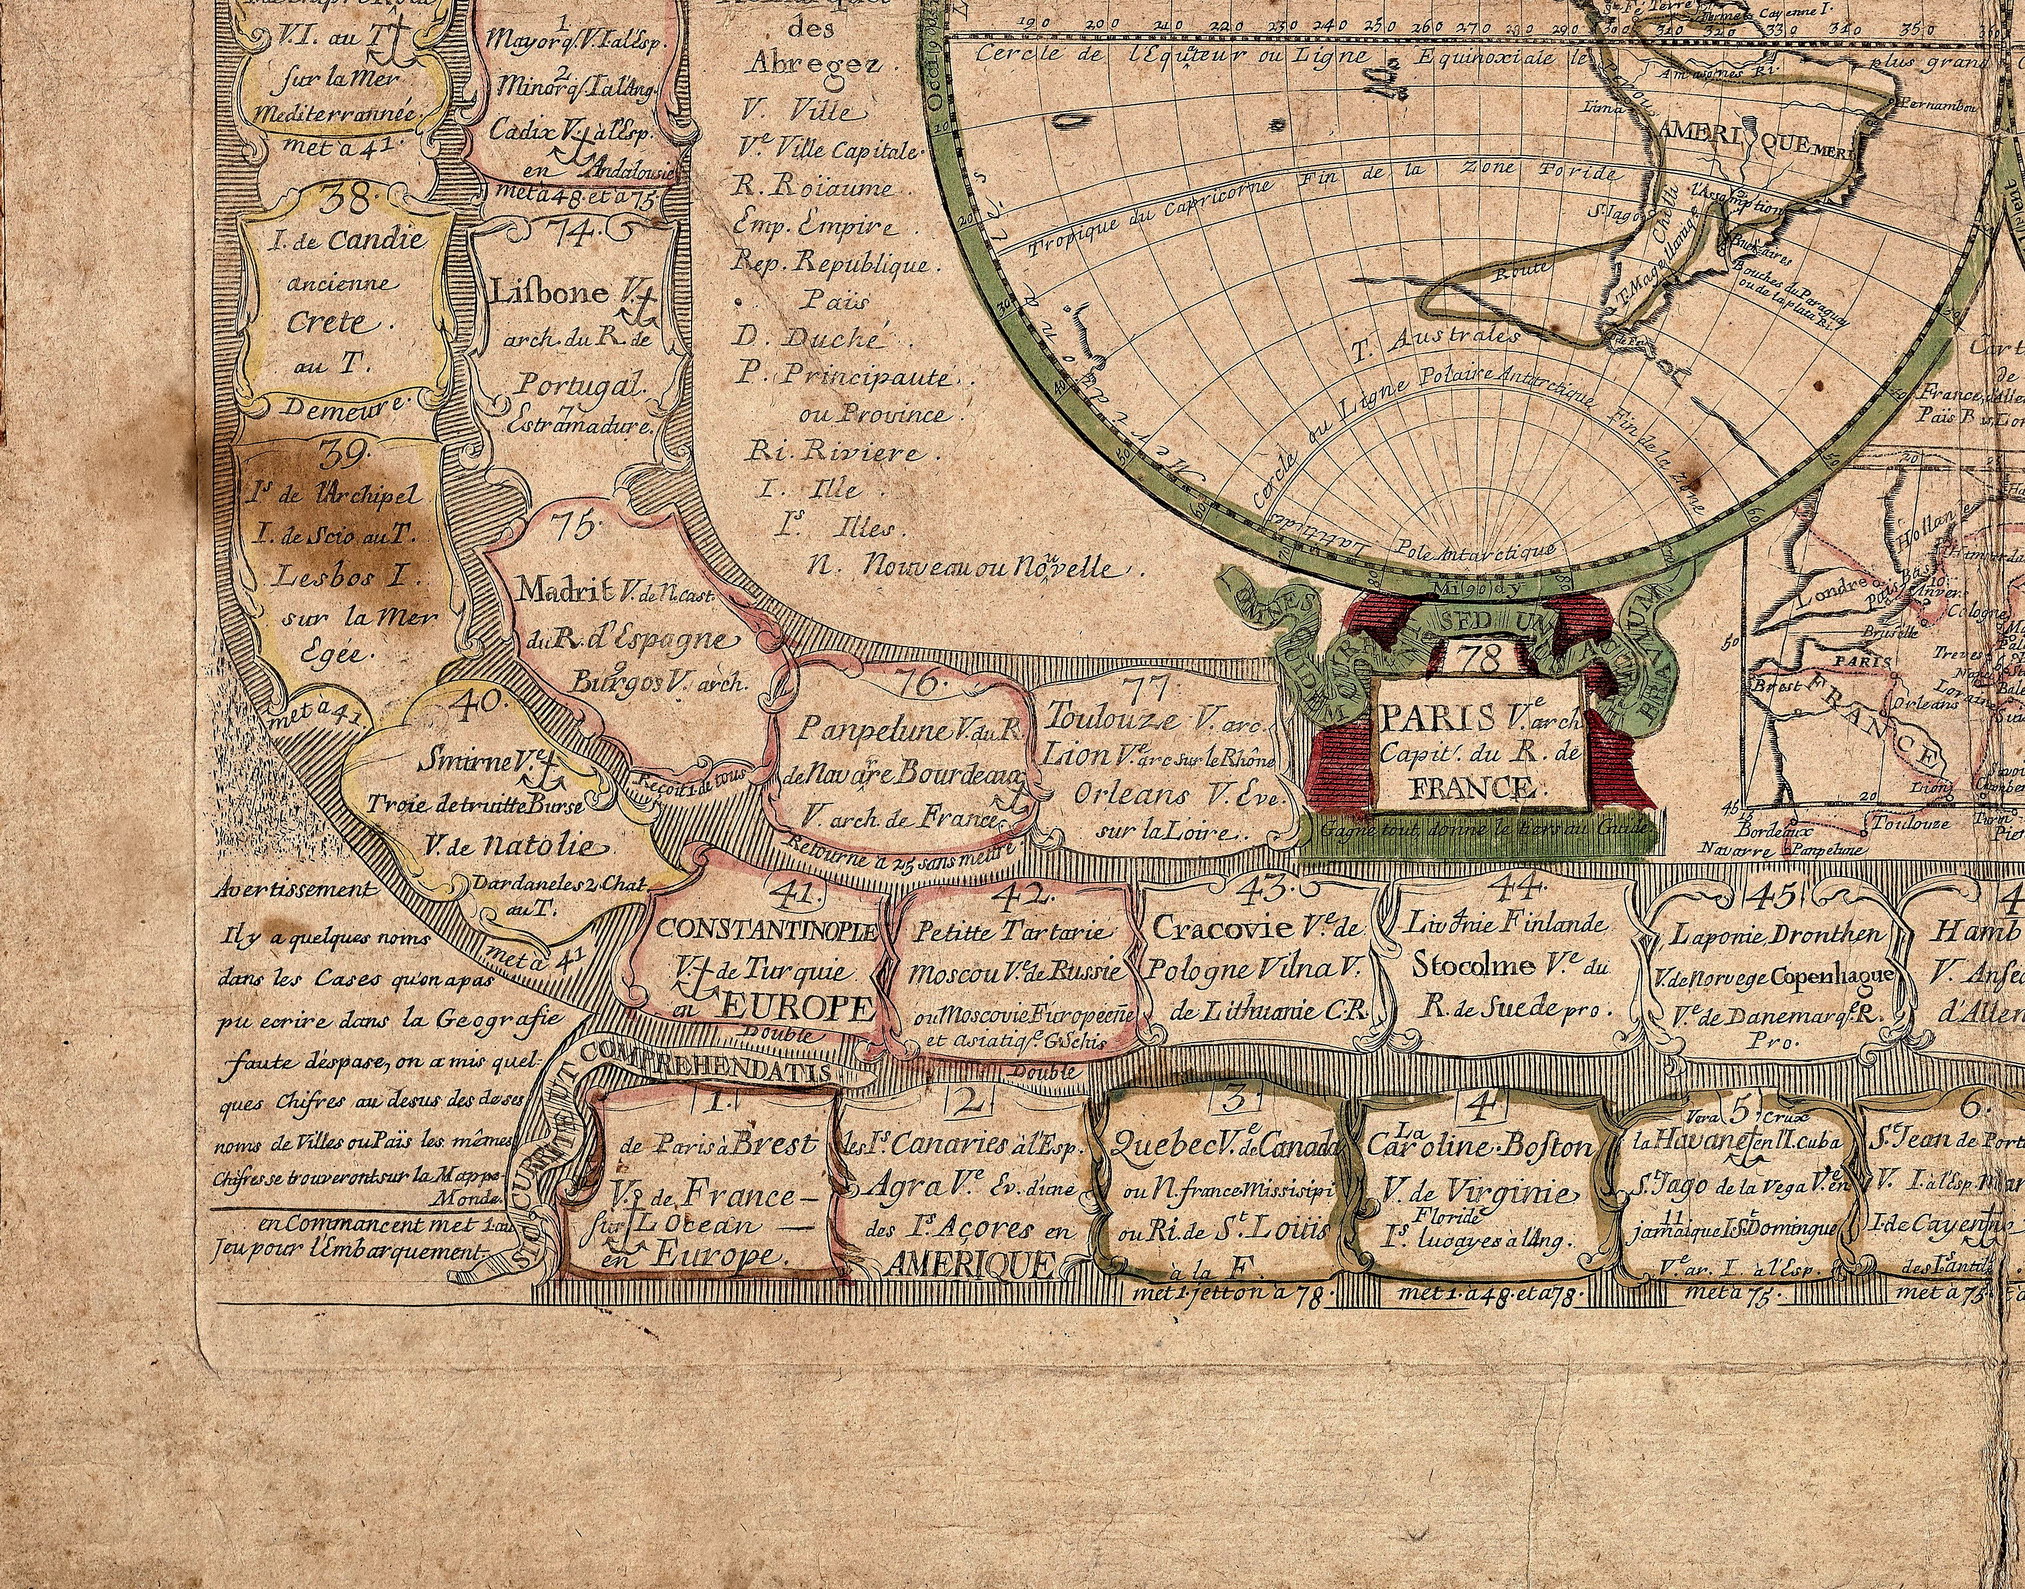 V.I. au T
sur la Mer
Mediterrannée.
met a 41.
38.
I. de Candie
ancienne
Crete.
au T.
Demeure.
39.
I.s de l'Archipel
I. de Scio au T.
Lesbos I.
sur la Mer
Egée.
met a 41
40.
Smirne V.e
Troie detruitte Burse
V. de Natolie
Dardaneles 2 Chat.
au T.
met a 41
1
Mayorq/V. I al'Esp.
2
Minorq/I al'Ang.
Cadix V. à l'Esp.
en Andalousie
met a 48. et a 75.
74.
Lisbone V.
arch. du R. de
Portugal.
7
Estramadure.
75.
Madrit V. de N. Cast.
du R. d'Espagne
9
Burgos V. arch.
Reçoit 1 de tous
76.
Panpelune V. du R.
de Navarre Bourdeaux
V. arch. de France
Retourne a 25 sans meure
77
Toulouze V. arc.
Lion V.e arc sur le Rhône
Orleans V. Eve.
sur la Loire.
78
PARIS V.e arch
Capit.l du R. de
FRANCE.
Gagne tout, donne le tiers au Guide
des
Abregez.
V. Ville
V.e Ville Capitale.
R. Roïaume
Emp. Empire.
Rep. Republique.
Païs
D. Duché.
P. Principauté.
ou Province.
Ri. Riviere.
I. Ille.
I.s Illes.
N. Nouveau ou Nouvelle.
190 200 210 220 230 240 250 260 270 280 290 300 310 320 330 340 350 36
Cercle de l'Equateur ou Ligne Equinoxiale le plus grand
Cayenne I.
Amasones Ri.
Pernambou
Lima
Perou
AMERIQUE MERI
Tropique du Capricorne Fin de la Zone Toride
l'Assomption
S. Iago
Chilli
T. Magellanique
Buenaires
Bouches du Paraguay
ou de la plata Ri.
Route
T. Australes
Cercle ou Ligne Polaire Antarctique Fin de la Zone
Latitudes
Pole Antarctique
Mi go dy
10 20 30 40 50 60
SED UN
Cart
de
France, Allem
Païs B
Hollande
Londre
Pais Bas
Anvers
Cologne
Bruselle
PARIS
Treves
Brest
Loraine
Orleans
FRANCE
Lion
50
45
20
Bordeaux
Toulouze
Navarre
Panpelune
41.
CONSTANTINOPLE
V. de Turquie
en EUROPE
Double
42.
Petitte Tartarie
Moscou V.e de Russie
ou Moscovie Européene
et asiatiq.e G. Schis
Double
43.
Cracovie V.e de
Pologne Vilna V.
de Lithuanie C.R.
44.
Livonie Finlande
Stocolme V.e du
R. de Suede pro.
45
Laponie Dronthen
V. de Norvege Copenhague
V.e de Danemarq.e R.
Pro.
4
Hamb
V. Anse
d'Allem
Avertissement
Il y a quelques noms
dans les Cases qu'on a pas
pu ecrire dans la Geografie
faute d'espase, on a mis quel-
ques Chifres au desus des deses
noms de Villes ou Païs les mêmes
Chifres se trouveront sur la Mappe-
Monde.
en Commancent met 1 au
Jeu pour l'Embarquement.
COMPREHENDATIS
1.
de Paris à Brest
V. de France
sur L'Ocean
en Europe.
2
les I.s Canaries à l'Esp.
Agra V.e Ev. d'une
des I.s Açores en
AMERIQUE
3
Quebec V.e de Canada
ou N. france Missisipi
ou Ri. de S.t Louis
à la F.
met 1. jetton a 78.
4
La
Caroline Boston
V. de Virginie
Floride
I.s lucayes à l'Ang.
met 1. a 48. et a 78.
5
Vera Crux
la Havane en l'I. cuba
S.t Jago de la Vega V.e en
11
jamaique I. S.t Domingue
V.e ar. I. à l'Esp.
met a 75.
6.
S.t Jean de Port
V. I. à l'Esp. Mar
I. de Cayenne
des I. antil
met à 75